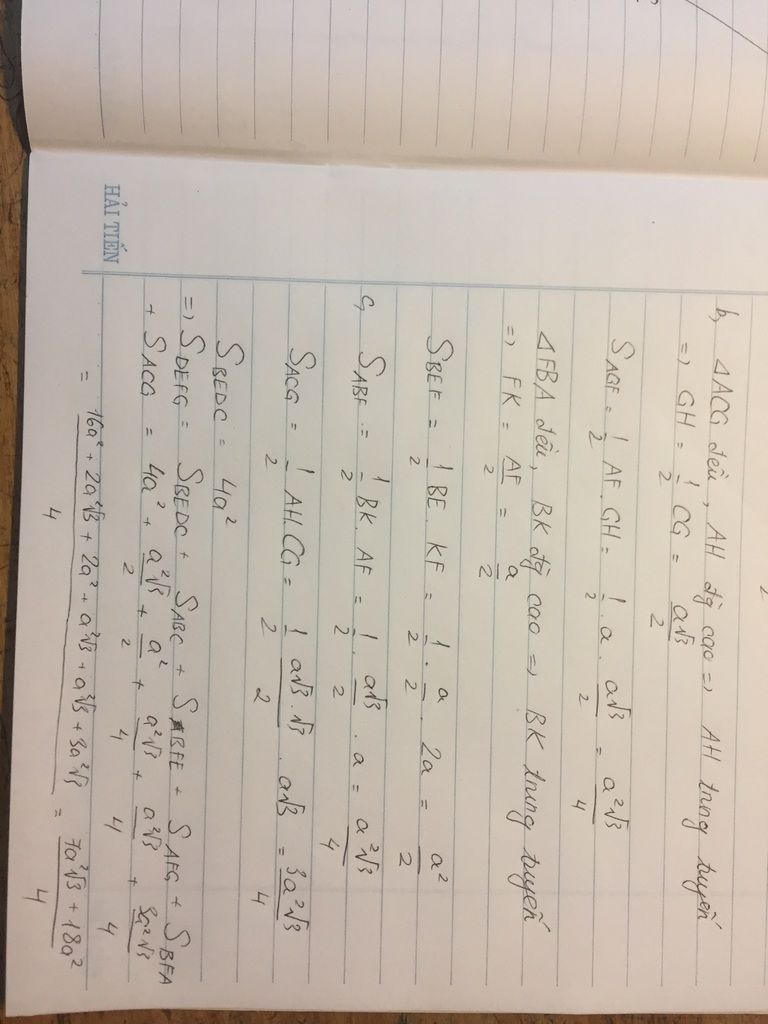 b, ΔACG đều, AH đg cao => AH trung tuyến
=> GH = 1/2 CG = a√3/2
S_AGF = 1/2 AF. GH = 1/2 . a . a√3/2 = a²√3/4
ΔFBA đều, BK đg cao => BK trung tuyến
=> FK = AF/2 = a/2
S_BEF = 1/2 BE. KF = 1/2 . a/2 . 2a = a²/2
c, S_ABF = 1/2 BK. AF = 1/2 . a√3/2 . a = a²√3/4
S_ACG = 1/2 AH.CG = 1/2 a√3.√3/2 . a√3 = 3a²√3/4
S_BEDC = 4a²
=> S_DEFG = S_BEDC + S_ABC + S_BFE + S_AFG + S_BFA
+ S_ACG = 4a² + a²√3/2 + a²/2 + a²√3/4 + a²√3/4 + 3a²√3/4
= 16a² + 2a²√3 + 2a² + a²√3 + a²√3 + 3a²√3/4 = 7a²√3 + 18a²/4
HẢI TIẾN